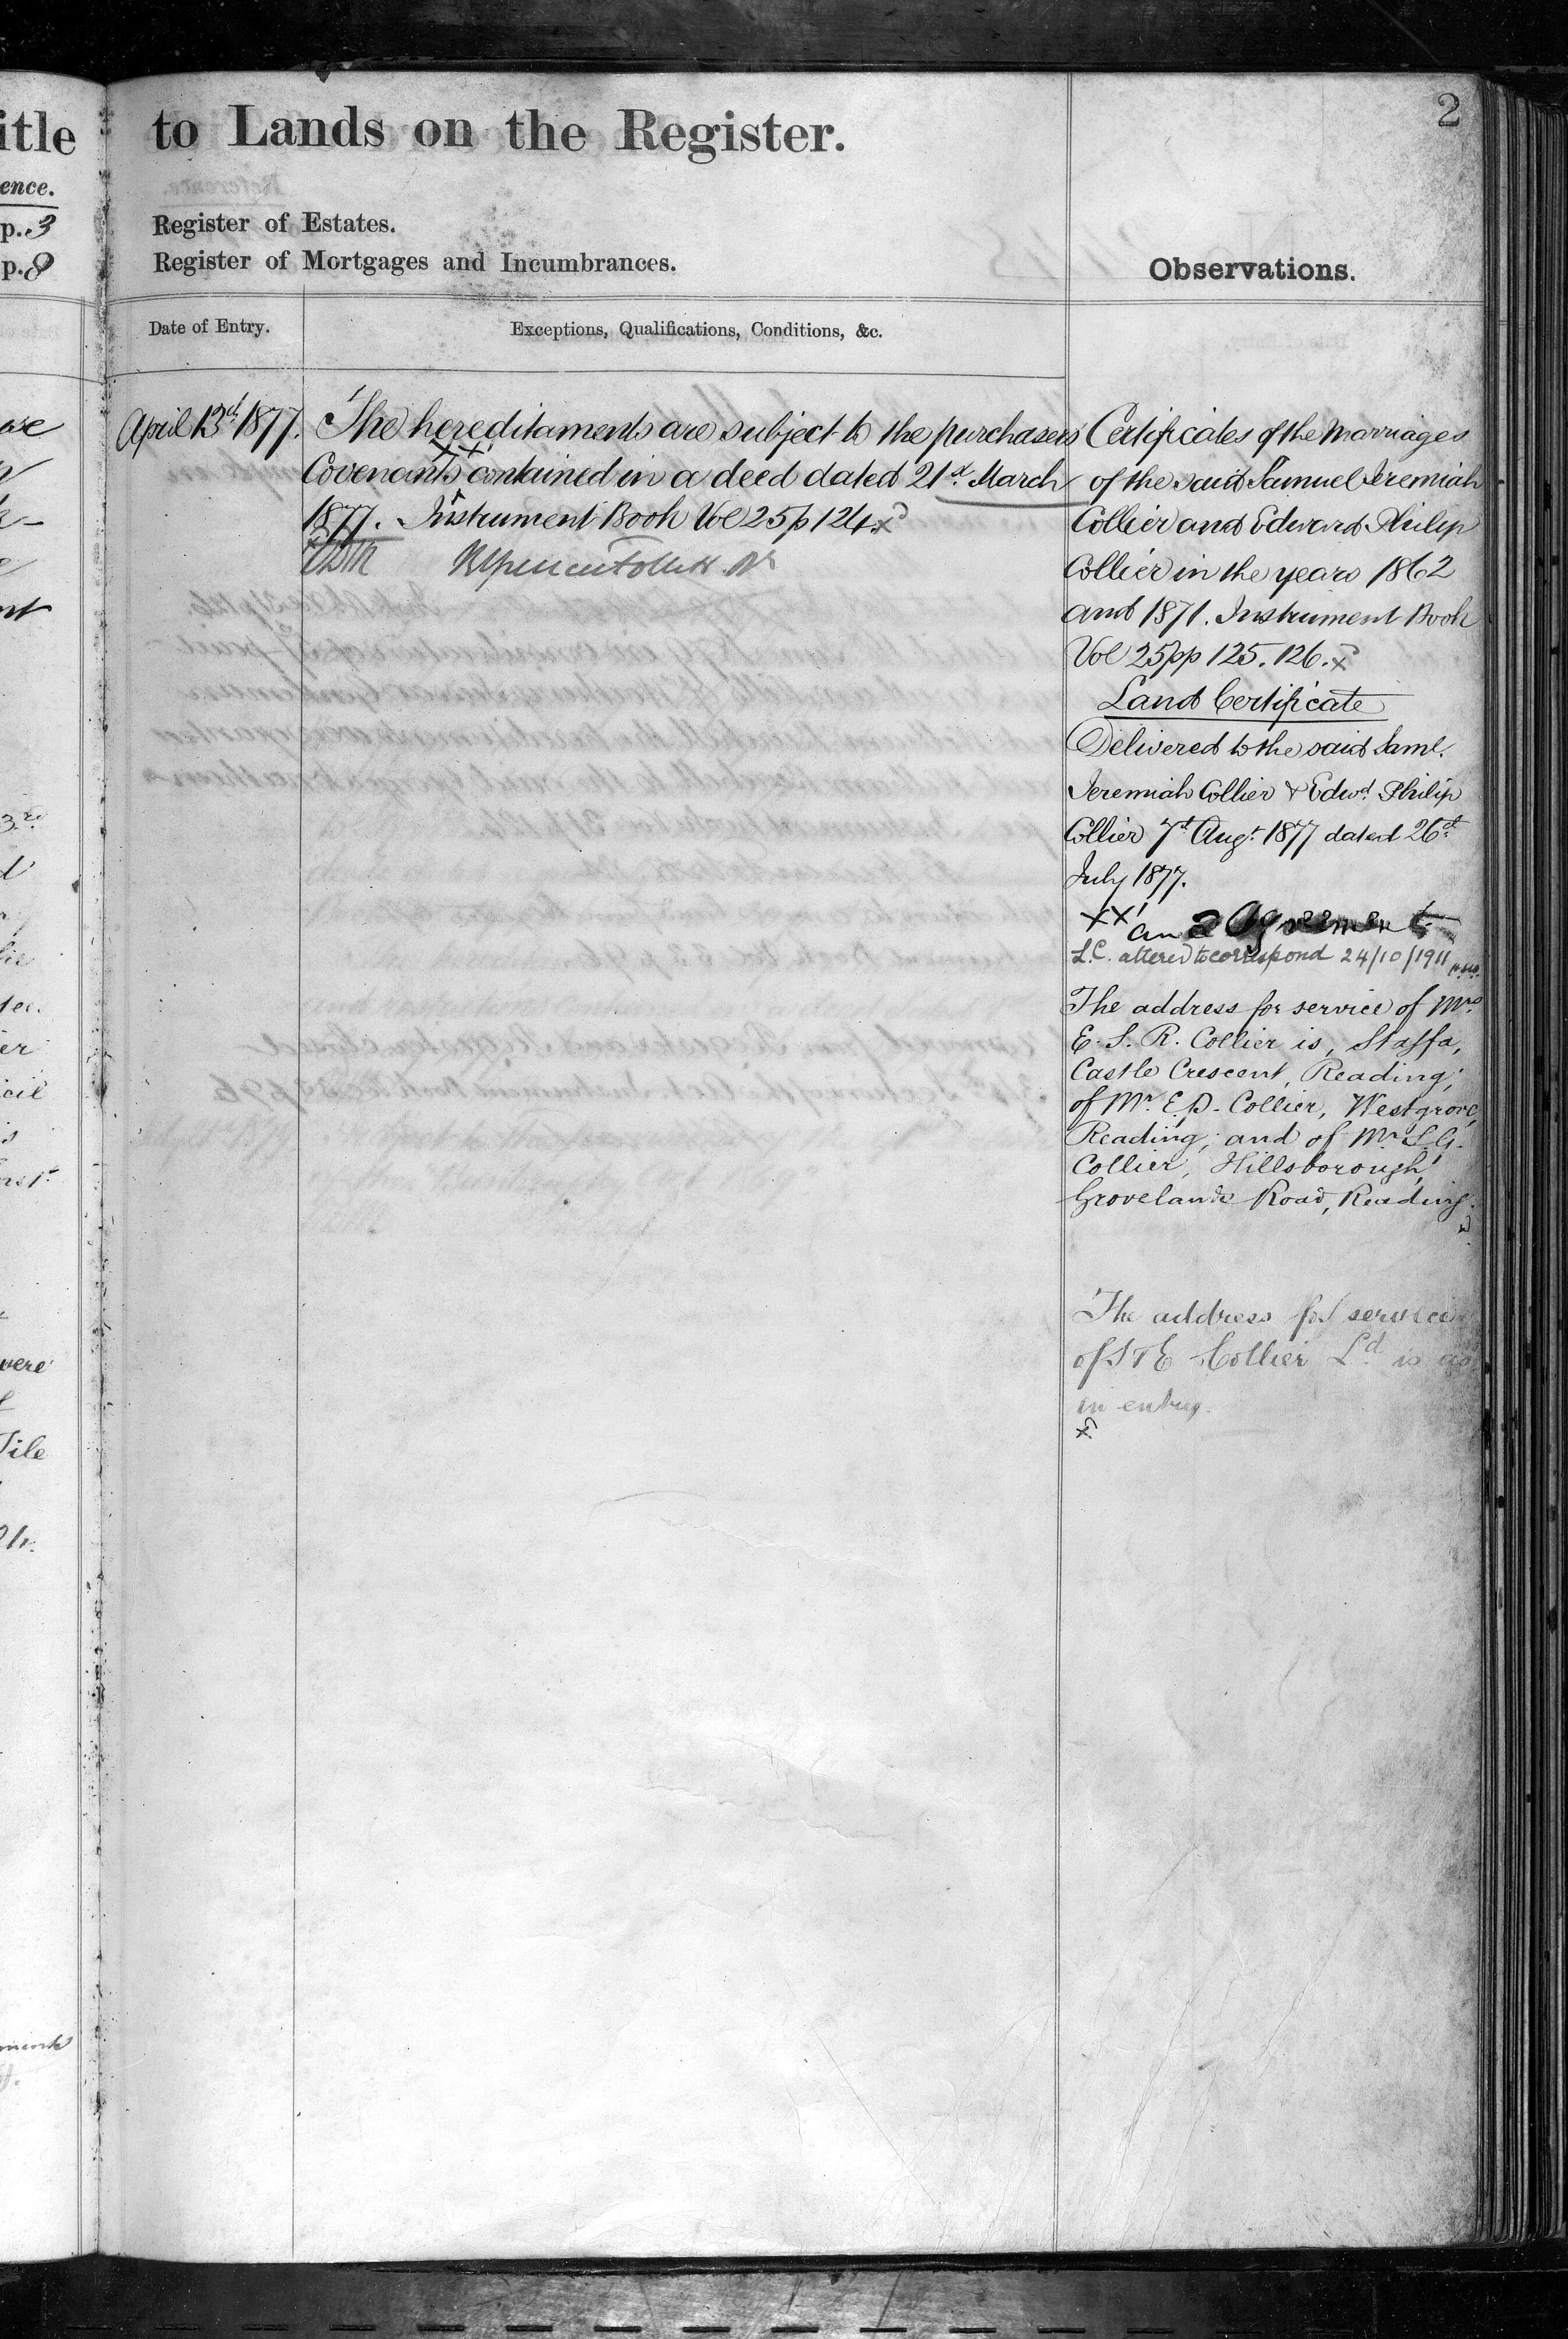 itle
ence.
p. 3
p. 8
to Lands on the Register.
2
Register of Estates.
Register of Mortgages and Incumbrances.
Observations.
Date of Entry.
Exceptions, Qualifications, Conditions, &c.
April 13th 1877.
The hereditaments are subject to the purchasers
Covenants xx contained in a deed dated 21st March
1877. Instrument Book Vol 25 p 124. x
Certificates of the Marriages
of the said Samuel Jeremiah
Collier and Edward Philip
Collier in the years 1862
and 1871. Instrument Book
Vol 25 pp 125. 126. x
Land Certificate
Delivered to the said Saml.
Jeremiah Collier & Edwd. Philip
Collier 7th Augt. 1877 dated 26th
July 1877.
xx' an agreement
L.C. altered to correspond 24/10/1911
The address for service of Mrs.
E. S. R. Collier is, Staffa,
Castle Crescent, Reading;
of Mr. E. P. Collier, Westgrove,
Reading; and of Mr. S. G.
Collier, Hillsborough,
Grovelands Road, Reading.
The address for service
of S & E Collier Ld is as
in entry.
x
ose
nt
3rd
er
were
Tile